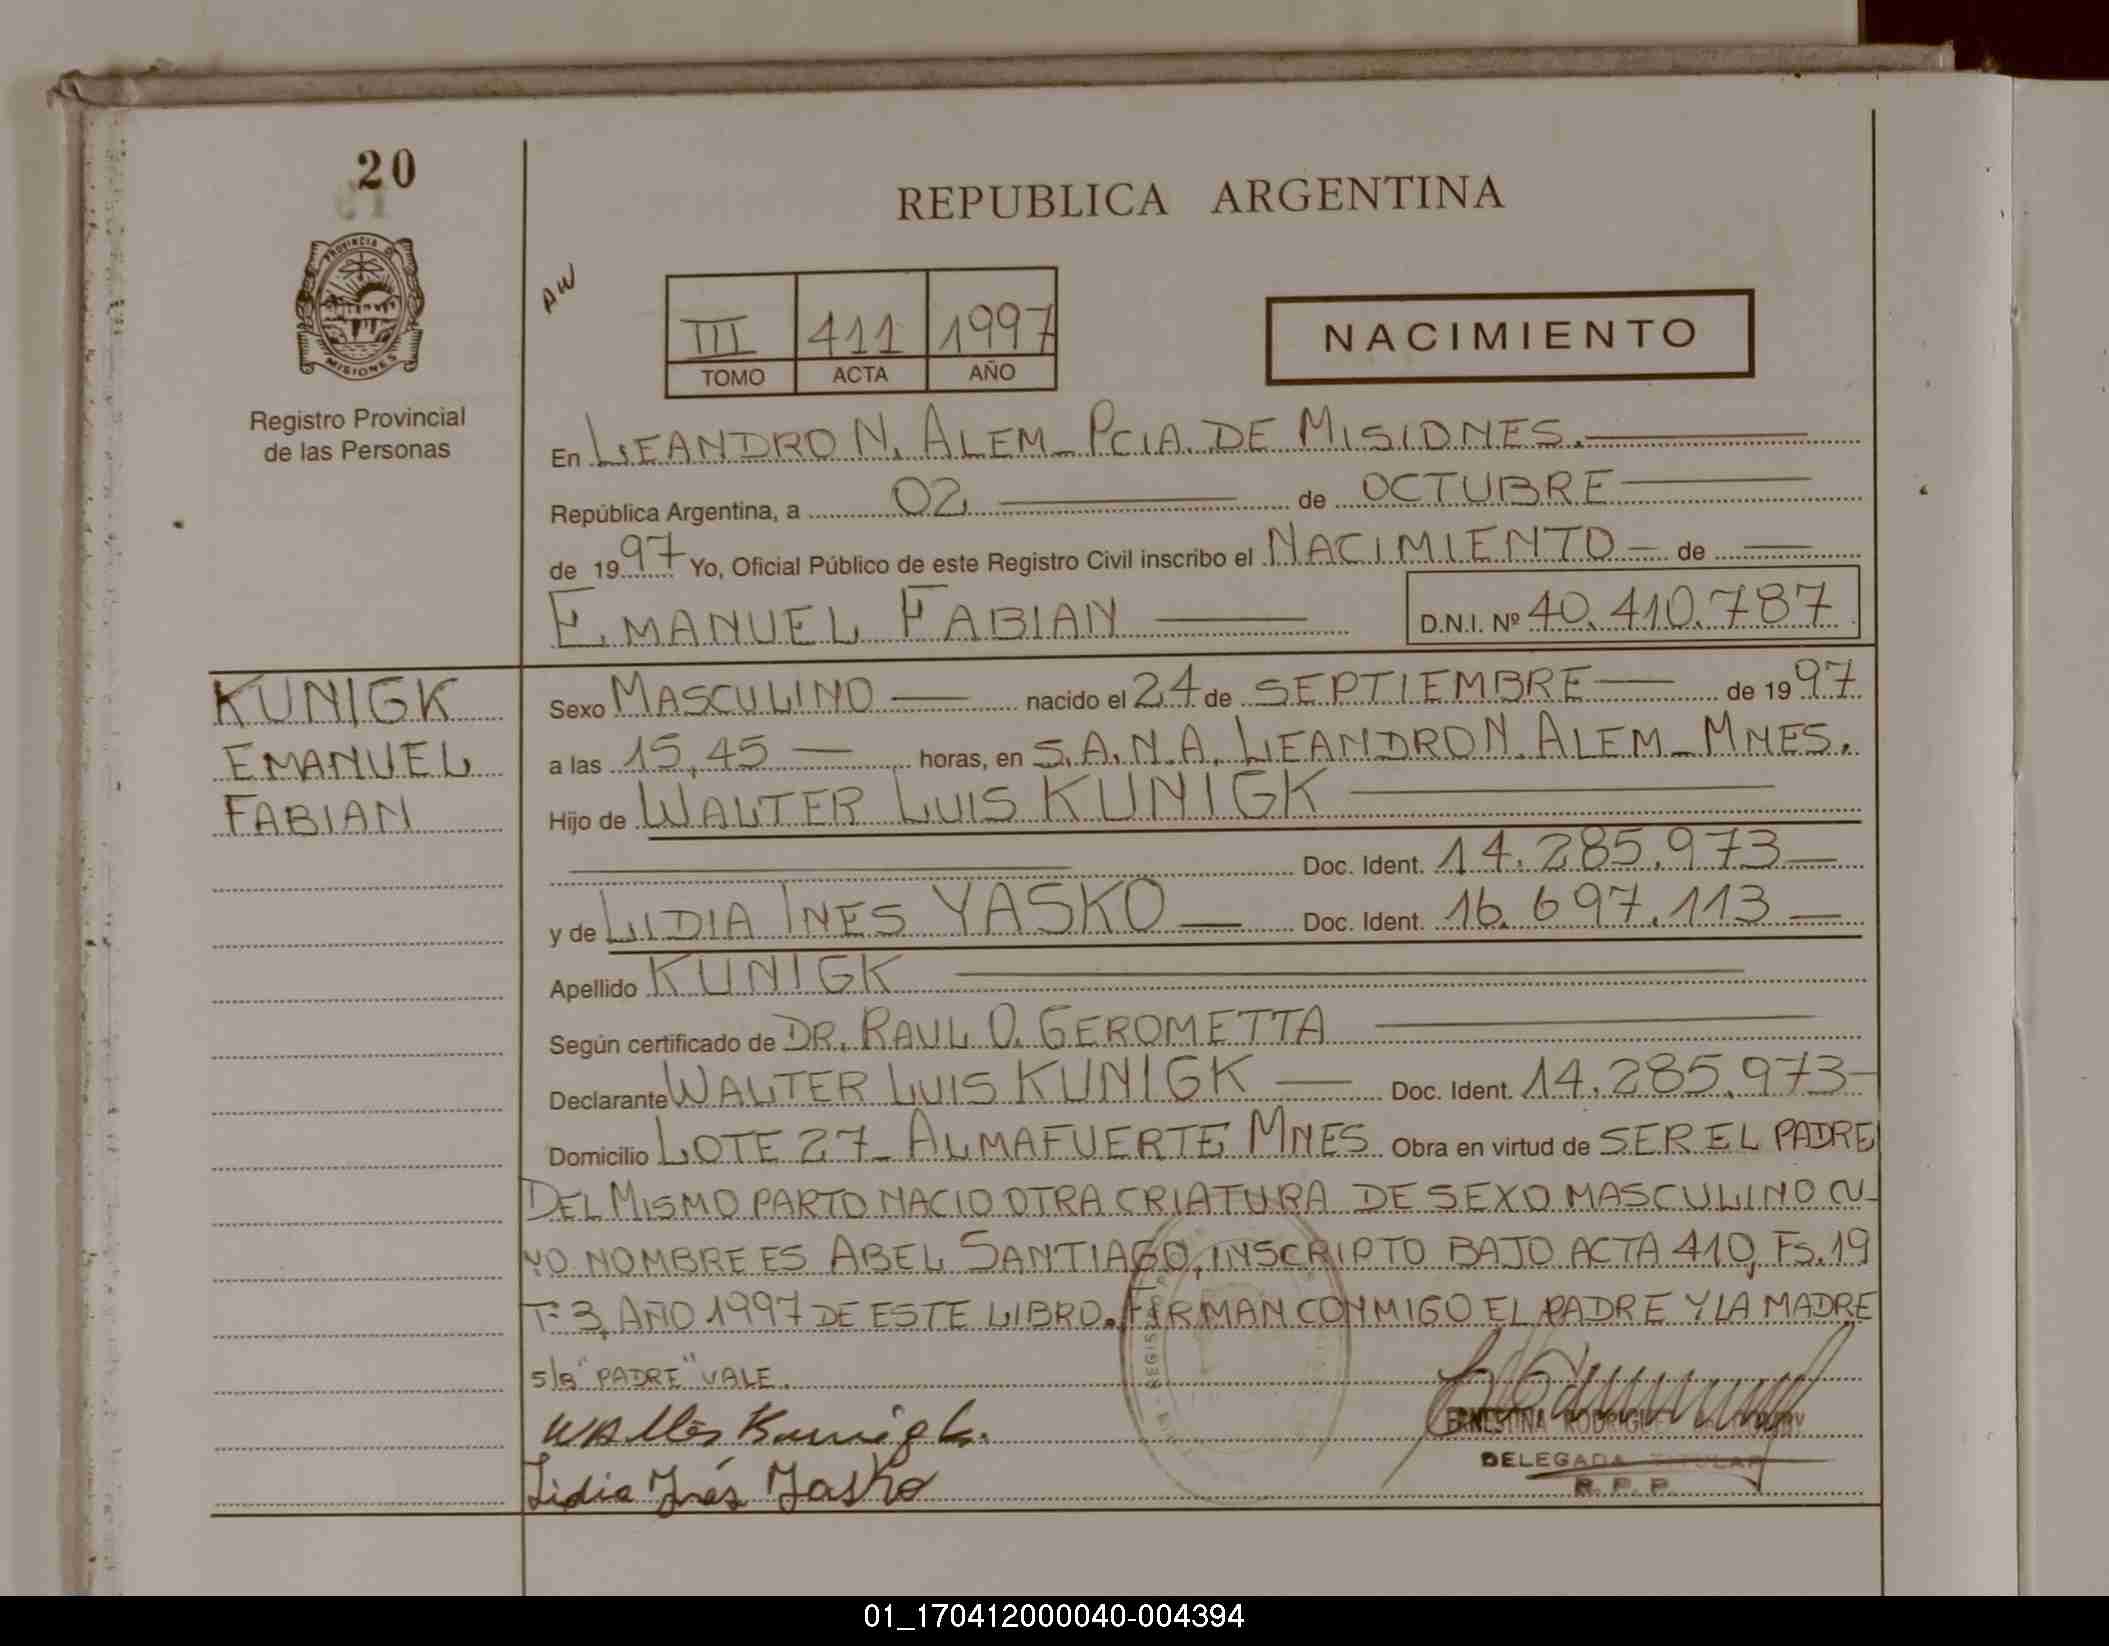 20
REPUBLICA ARGENTINA
PROVINCIA DE
MISIONES
Registro Provincial
de las Personas
AW
III 411 1997
TOMO ACTA AÑO
NACIMIENTO
En LEANDRO N. ALEM_ PCIA. DE MISIONES.
República Argentina, a 02 de OCTUBRE
de 1997 Yo, Oficial Público de este Registro Civil inscribo el NACIMIENTO de
EMANUEL FABIAN D.N.I. Nº 40.410.787
KUNIGK
EMANUEL
FABIAN
Sexo MASCULINO nacido el 24 de SEPTIEMBRE de 1997
a las 15,45 horas, en S.A.N.A. LEANDRO N. ALEM_ MNES.
Hijo de WALTER LUIS KUNIGK
Doc. Ident. 14.285.973
y de LIDIA INES YASKO Doc. Ident. 16.697.113
Apellido KUNIGK
Según certificado de DR. RAUL O. GEROMETTA
Declarante WALTER LUIS KUNIGK Doc. Ident. 14.285.973
Domicilio LOTE 27_ ALMAFUERTE MNES Obra en virtud de SER EL PADRE
DEL MISMO PARTO NACIO OTRA CRIATURA DE SEXO MASCULINO CU-
YO NOMBRE ES ABEL SANTIAGO, INSCRIPTO BAJO ACTA 410, FS. 19
Tº 3, AÑO 1997 DE ESTE LIBRO. FIRMAN CONMIGO EL PADRE Y LA MADRE
S/B "PADRE" VALE.
WAlter Kunigk.
Lidia Inés Yasko
ERNESTINA
DELEGADA TITULAR
R. P. P.
01_170412000040-004394